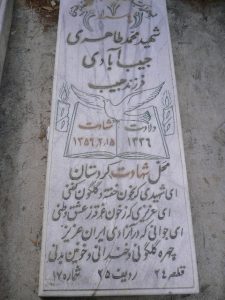 شهید محمد طاهری
حبیب آبادی
فرزند حبیب
ولادت شهادت
۱۳۳۶ ۱۳۵۶,۲,۱۵
محل شهادت کردستان
ای شهیدی که بخون خفته و گلگون کفنی
ای عزیزی که زخون غرقه زعشق وطنی
ای جوانی که در آزادی ایران عزیز
چهره گلگونی و خونین بدنی
قطعه ۲۴ ردیف ۲۵ شماره ۱۲